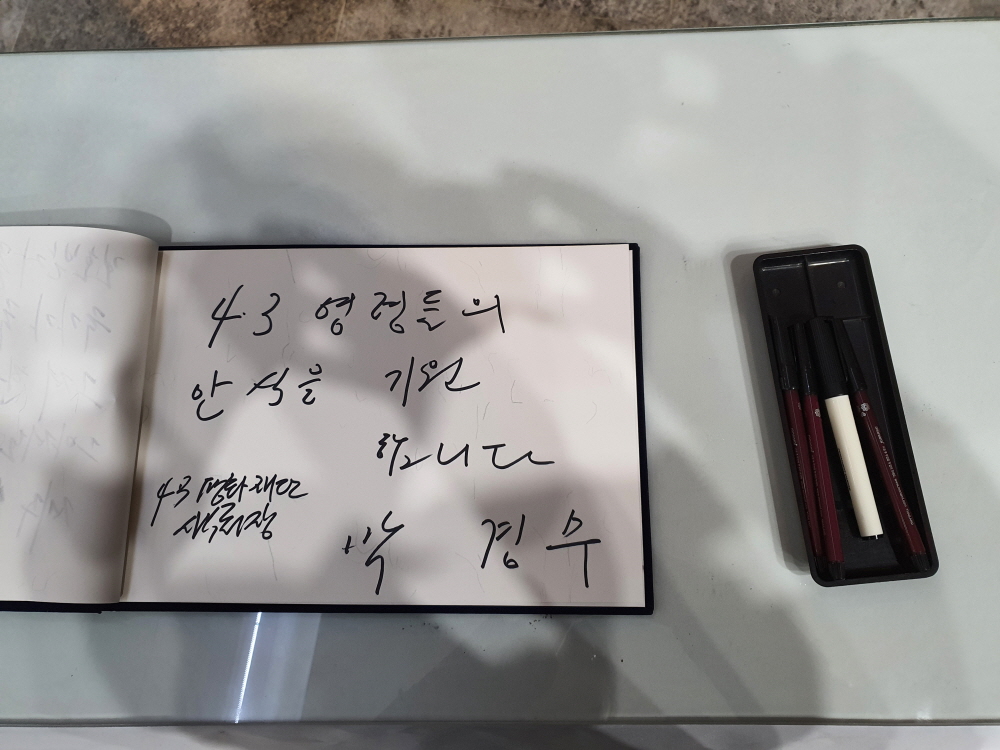 4.3 영령들의
안식을 기원
합니다
4.3 평화재단
박 경 수